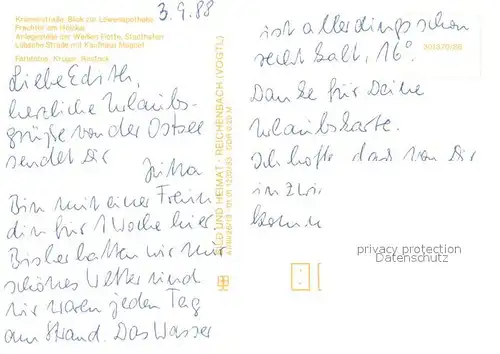 3.9.88
Krämerstraße: Blick zur Löwenapotheke
Frachter am Hafen
Anlegestelle der Weißen Flotte, Stadthafen
Lübsche Straße mit Kaufhaus Magnet
Farbfotos: Krüger, Rostock
Liebe Edith,
herzliche Urlaubs-
grüße von der Ostsee
sendet Dir
Jutta
Bin mit einer Freun
din für 1 Woche hier
Bisher hatten wir nur
schönes Wetter und
wir waren jeden Tag
am Strand. Das Wasser
BILD UND HEIMAT · REICHENBACH (VOGTL)
DDR 0,20 M
ist allerdings schon
recht kalt, 16°.
Danke für Deine
Urlaubskarte.
Ich hoffe das von Dir
in
privacy protection
Datenschutz